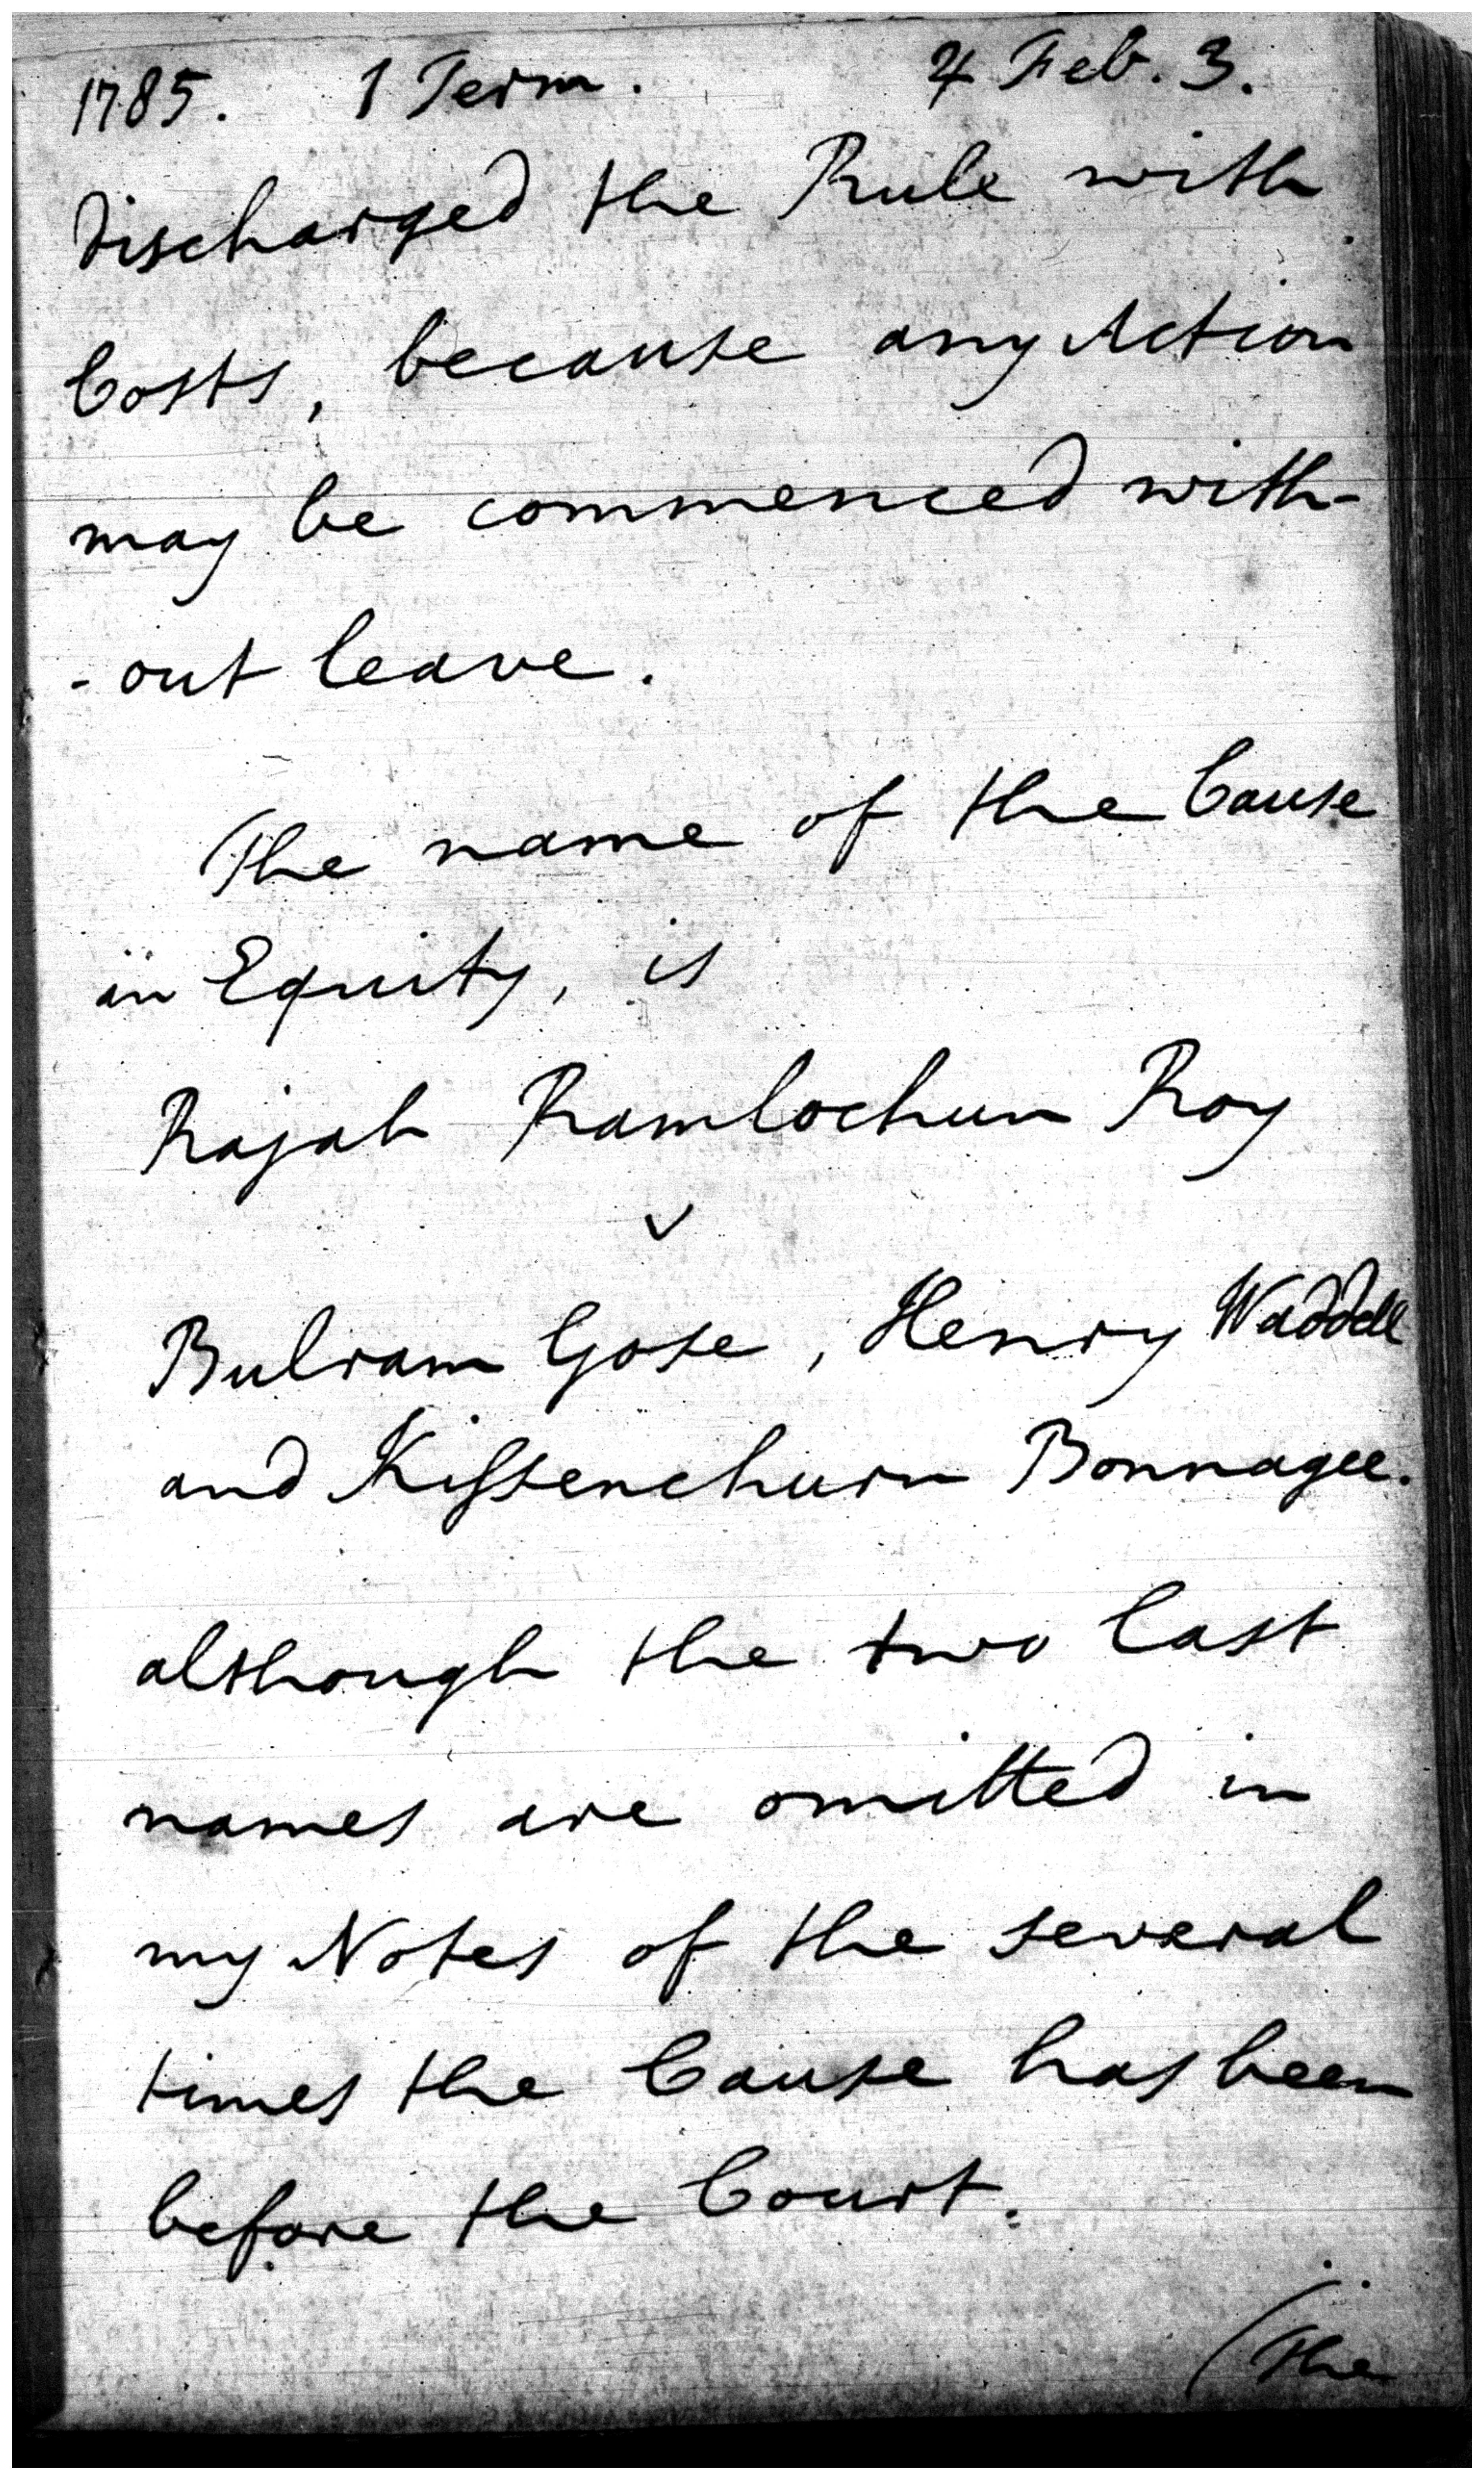 1785. 1 Term. 4 Feb. 3.
discharged the Rule with
Costs, because any Action
may be commenced with-
-out leave.
The name of the Cause
in Equity, is
Rajah Ramlochun Roy
v
Bulram Gose, Henry Waddell
and Kissenchurn Bonnagee.
although the two last
names are omitted in
my Notes of the several
times the Cause has been
before the Court.
(The